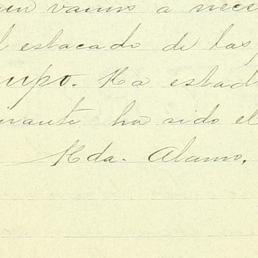 vamos a nece
estacado de las
upo. Ha estad
vante ha sido el
Hda. Alamo.